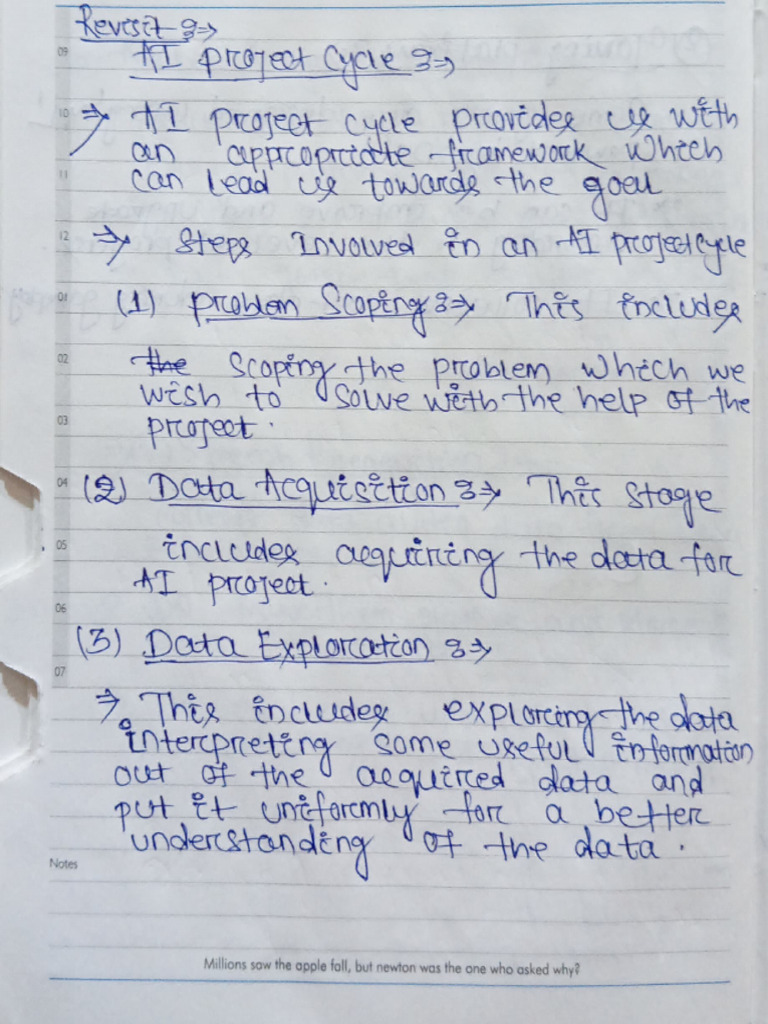 Revisit :⇒
09
AI project cycle :⇒
10
⇒ AI project cycle provides us with
an appropriate framework which
11
can lead us towards the goal
12
⇒ Steps Involved in an AI project cycle
01
(1) problem Scoping :⇒ This includes
02
the scoping the problem which we
wish to solve with the help of the
03
project.
04
(2) Data Acquisition :⇒ This stage
05
includes acquiring the data for
AI project.
06
(3) Data Exploration :⇒
07
⇒ This includes exploring the data
interpreting some useful information
out of the acquired data and
put it uniformly for a better
understanding of the data.
Notes
Millions saw the apple fall, but newton was the one who asked why?